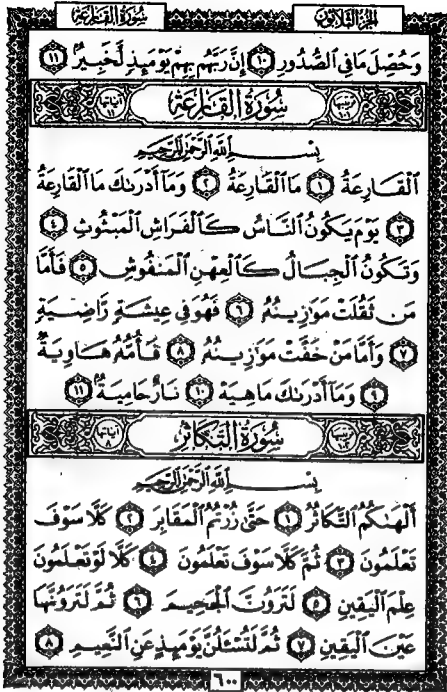 سُورَةُ القَارِعَةِ الجُزْءُ الثَّلَاثُونَ
وَحُصِّلَ مَا فِي ٱلصُّدُورِ ١٠ إِنَّ رَبَّهُم بِهِمْ يَوْمَئِذٍ لَّخَبِيرٌ ١١
سُورَةُ القَارِعَةِ
بِسْمِ ٱللَّهِ ٱلرَّحْمَٰنِ ٱلرَّحِيمِ
ٱلْقَارِعَةُ ١ مَا ٱلْقَارِعَةُ ٢ وَمَآ أَدْرَىٰكَ مَا ٱلْقَارِعَةُ
٣ يَوْمَ يَكُونُ ٱلنَّاسُ كَٱلْفَرَاشِ ٱلْمَبْثُوثِ ٤
وَتَكُونُ ٱلْجِبَالُ كَٱلْعِهْنِ ٱلْمَنفُوشِ ٥ فَأَمَّا
مَن ثَقُلَتْ مَوَٰزِينُهُۥ ٦ فَهُوَ فِي عِيشَةٍ رَّاضِيَةٍ
٧ وَأَمَّا مَنْ خَفَّتْ مَوَٰزِينُهُۥ ٨ فَأُمُّهُۥ هَاوِيَةٌ
٩ وَمَآ أَدْرَىٰكَ مَا هِيَهْ ١٠ نَارٌ حَامِيَةٌۢ ١١
سُورَةُ التَّكَاثُرِ
بِسْمِ ٱللَّهِ ٱلرَّحْمَٰنِ ٱلرَّحِيمِ
أَلْهَىٰكُمُ ٱلتَّكَاثُرُ ١ حَتَّىٰ زُرْتُمُ ٱلْمَقَابِرَ ٢ كَلَّا سَوْفَ
تَعْلَمُونَ ٣ ثُمَّ كَلَّا سَوْفَ تَعْلَمُونَ ٤ كَلَّا لَوْ تَعْلَمُونَ
عِلْمَ ٱلْيَقِينِ ٥ لَتَرَوُنَّ ٱلْجَحِيمَ ٦ ثُمَّ لَتَرَوُنَّهَا
عَيْنَ ٱلْيَقِينِ ٧ ثُمَّ لَتُسْـَٔلُنَّ يَوْمَئِذٍ عَنِ ٱلنَّعِيمِ ٨
٦٠٠